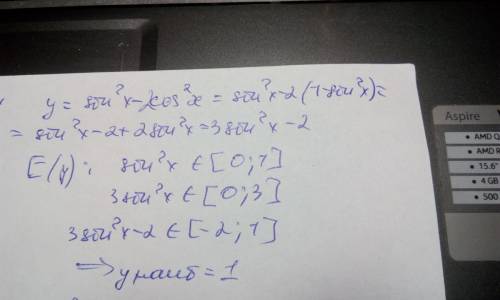 y = sin²x - 2cos²x = sin²x - 2(1 - sin²x) =
= sin²x - 2 + 2sin²x = 3sin²x - 2
E(y): sin²x ∈ [0;1]
3sin²x ∈ [0;3]
3sin²x - 2 ∈ [-2;1]
⇒ y наиб = 1
Aspire
• AMD
• AMD
• 15.6"
• 4 GB
• 500